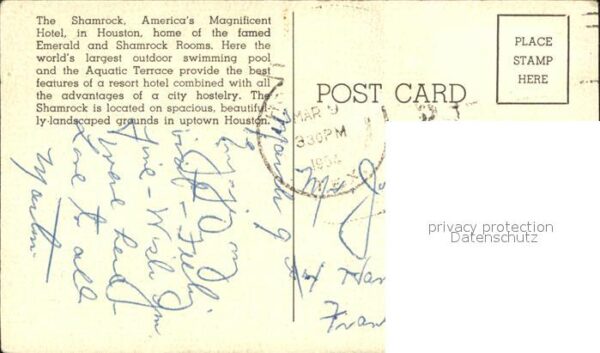 The Shamrock, America's Magnificent
Hotel, in Houston, home of the famed
Emerald and Shamrock Rooms. Here the
world's largest outdoor swimming pool
and the Aquatic Terrace provide the best
features of a resort hotel combined with all
the advantages of a city hostelry. The
Shamrock is located on spacious, beautiful-
ly-landscaped grounds in uptown Houston.
POST CARD
PLACE
STAMP
HERE
MAR 9
3 30 PM
1954
March 9
Enjoying my
visit - Feeling
fine - Wish you
were here
Love to all
privacy protection
Datenschutz